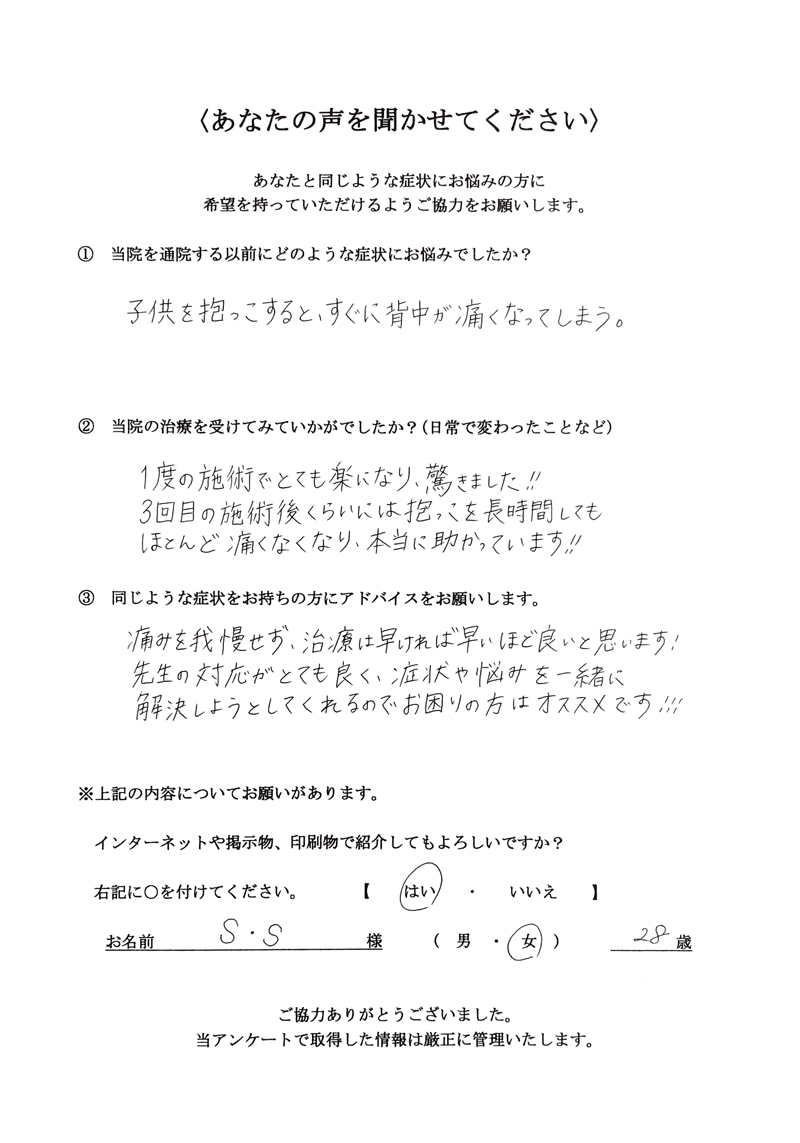 〈あなたの声を聞かせてください〉
あなたと同じような症状にお悩みの方に
希望を持っていただけるようご協力をお願いします。
① 当院を通院する以前にどのような症状にお悩みでしたか？
子供を抱っこすると、すぐに背中が痛くなってしまう。
② 当院の治療を受けてみていかがでしたか？（日常で変わったことなど）
1度の施術でとても楽になり、驚きました!!
3回目の施術後くらいには抱っこを長時間しても
ほとんど痛くなくなり、本当に助かっています!!
③ 同じような症状をお持ちの方にアドバイスをお願いします。
痛みを我慢せず、治療は早ければ早いほど良いと思います!
先生の対応がとても良く、症状や悩みを一緒に
解決しようとしてくれるのでお困りの方はオススメです!!!
※上記の内容についてお願いがあります。
インターネットや掲示物、印刷物で紹介してもよろしいですか？
右記に○を付けてください。 【 はい ・ いいえ 】
お名前 S・S 様 （ 男 ・ 女 ） 28 歳
ご協力ありがとうございました。
当アンケートで取得した情報は厳正に管理いたします。